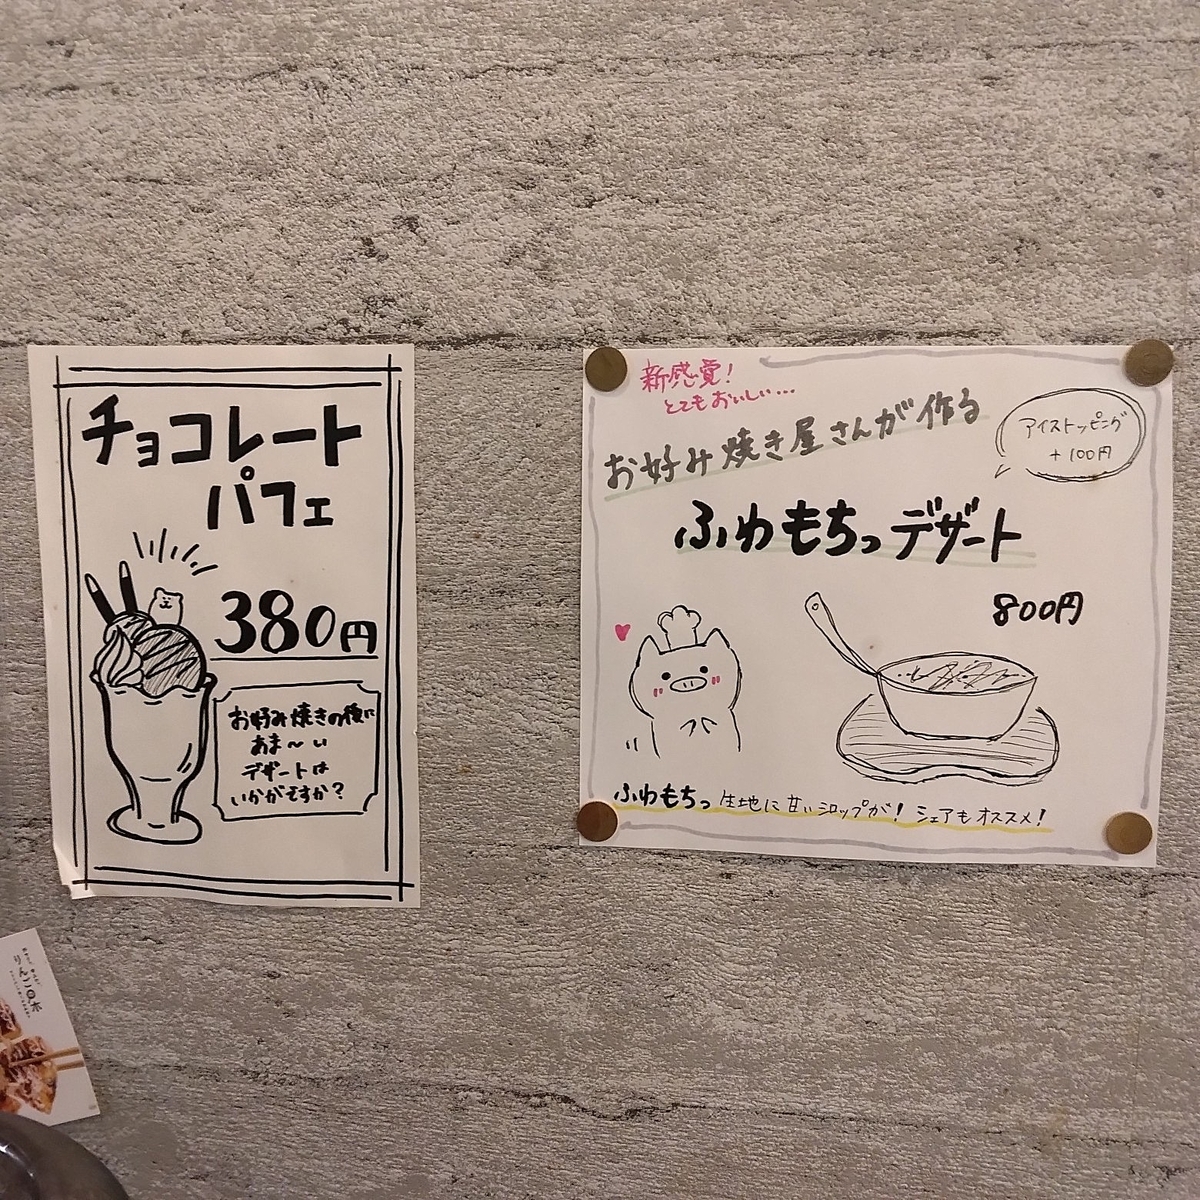 チョコレート
パフェ
380円
お好み焼きの後に
あま〜い
デザートは
いかがですか?
新感覚!
とてもおいしい…
お好み焼き屋さんが作る
アイストッピング
+100円
ふわもちっデザート
800円
ふわもちっ生地に甘いシロップが! シェアもオススメ!